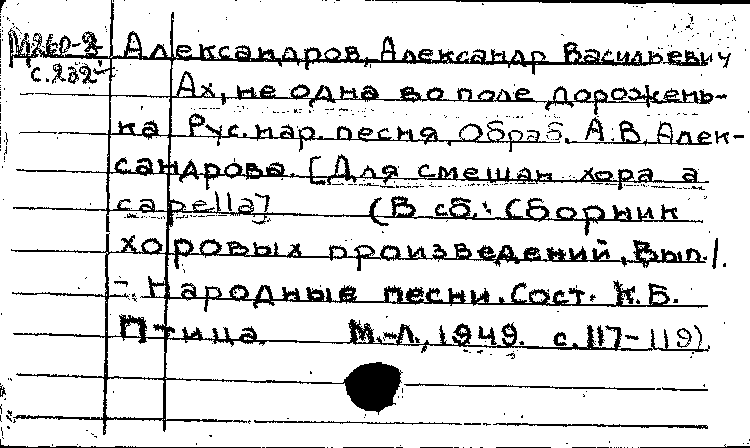 М260-2 Александров, Александр Васильевич
с.232
Ах, не одна во поле дорожень-
ка Рус. нар. песня. Обраб. А.В. Алек-
сандрова. [Для смешан хора a
capella] (В сб.: Сборник
хоровых произведений, Вып. 1.
- Народные песни. Сост. К.Б.
Птица. М.-Л., 1949. с. 117-119).